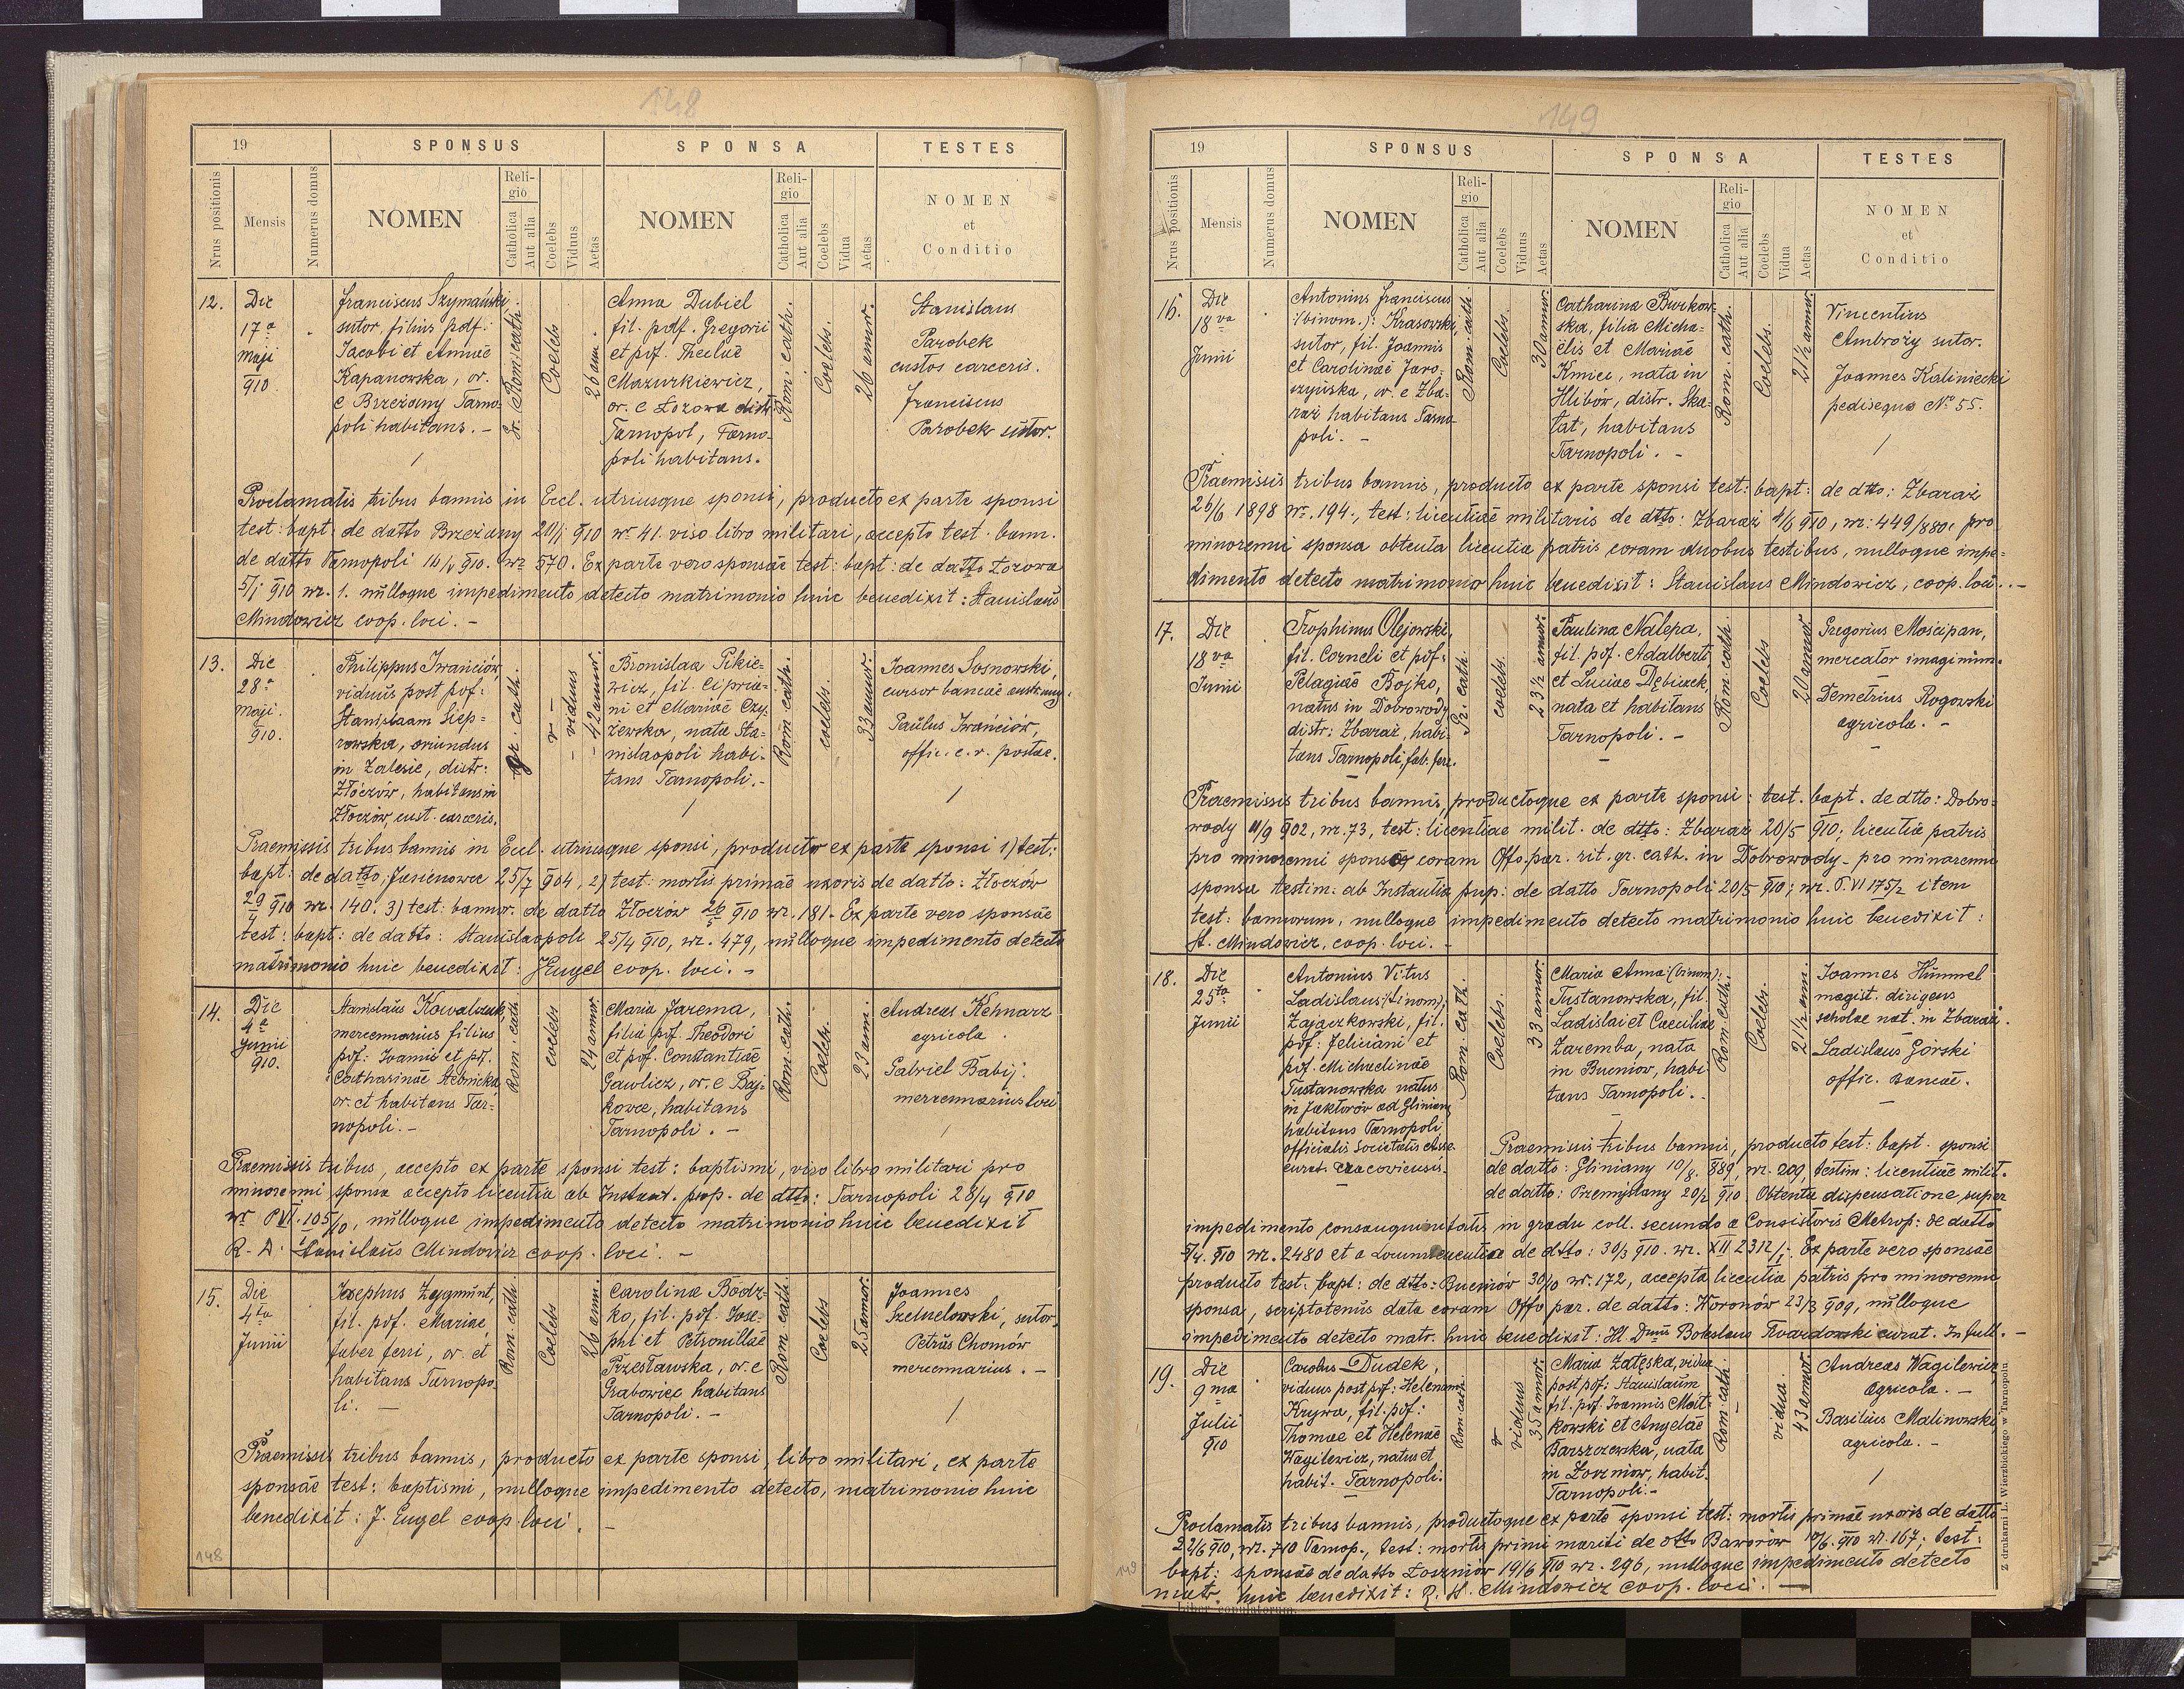 148
19 SPONSUS SPONSA TESTES
Nrus positionis
Mensis
Numerus domus
NOMEN
Religio
Catholica
Aut alia
Coelebs
Viduus
Aetas
NOMEN
Religio
Catholica
Aut alia
Coelebs
Vidua
Aetas
NOMEN
et
Conditio
12.
Die
17a
Maji
910.
Franciscus Szymański
sutor, filius pdf:
Jacobi et Annae
Kapanowska, or.
e Brzeżany Tarno-
poli habitans. -
Rom. cath.
Coelebs
26 ann.
Anna Dubiel
fil. pdf. Gregorii
et pdf. Theclae
Mazurkiewicz,
or. e Łozowa distr.
Tarnopol, Tarno-
poli habitans.
Rom. cath.
Coelebs.
26 annor.
Stanislaus
Parobek
custos carceris.
Franciscus
Parobek sutor.
Proclamatis tribus bannis in Eccl. utriusque sponsi, producto ex parte sponsi
test: bapt. de datto Brzeżany 20/1 910 nr 41. viso libro militari, accepto test. bann.
de datto Tarnopoli 16/V 910. nr 570. Ex parte vero sponsae test: bapt: de datto Łozowa
5/1 910 nr. 1. nulloque impedimento detecto matrimonio huic benedixit: Stanislaus
Mindowicz coop. loci. -
13.
Die
28a
Maji.
910.
Philippus Iwańciów,
viduus post pdf:
Stanislaam Siep-
rawska, oriundus
in Zalesie, distr:
Złoczów, habitans in
Złoczów, cust. carceris.
gr. cath.
viduus
42 annor.
Bronislaa Pikie-
wicz, fil. Cipria-
ni et Mariae Czy-
żewska, nata Sta-
nislaopoli habi-
tans Tarnopoli. -
Rom. cath.
coelebs.
33 annor.
Joannes Sosnowski,
cursor bancae austr. ung.
Paulus Iwańciów,
offic. c. r. postae.
Praemissis tribus bannis in Eccl. utriusque sponsi, producto ex parte sponsi 1) test:
bapt: de datto: Jasienowce 25/7 904, 2) test: mortis primae uxoris de datto: Złoczów
29/4 910 nr. 140. 3) test: bannor. de datto Złoczów 26/5 910 nr. 181. Ex parte vero sponsae
test: bapt: de datto: Stanislaopoli 25/4 910, nr. 479, nulloque impedimento detecto
matrimonio huic benedixit: J Engel coop. loci. -
14.
Die
4a
Junii
910.
Stanislaus Kowalczuk
mercennarius filius
pdf: Joannis et pdf.
Catharinae Stebnicka
or. et habitans Tar-
nopoli. -
Rom. cath.
coelebs
24 annor.
Maria Jarema,
filia pdf. Theodori
et pdf. Constantiae
Gawlicz, or. e Baj-
kowce, habitans
Tarnopoli. -
Rom. cath.
Coelebs.
23 ann.
Andreas Kehnarz
agricola.
Gabriel Babij.
mercennarius loci
Praemissis tribus, accepto ex parte sponsi test: baptismi, viso libro militari pro
minorenni sponsa accepto licentia ab Instant. pup. de dtto: Tarnopoli 28/4 910
nr P VI. 105/10, nulloque impedimento detecto matrimonio huic benedixit
R. D. Stanislaus Mindowicz coop. loci. -
15.
Die
4ta
Junii
Josephus Zygmunt,
fil. pdf. Mariae
faber ferri, or. et
habitans Tarnopo-
li. -
Rom. cath.
Coelebs
26 ann.
Carolina Bodz-
ko, fil. pdf. Jose-
phi et Petronillae
Przestawska, or. e
Grabowiec habitans
Tarnopoli. -
Rom. cath.
Coelebs
25 annor.
Joannes
Szehelowski, sutor,
Petrus Chomów
mercennarius. -
Praemissis tribus bannis, producto ex parte sponsi, libro militari, ex parte
sponsae test: baptismi, nulloque impedimento detecto, matrimonio huic
benedixit: J. Engel coop. loci. -
148
149
19 SPONSUS SPONSA TESTES
Nrus positionis
Mensis
Numerus domus
NOMEN
Religio
Catholica
Aut alia
Coelebs
Viduus
Aetas
NOMEN
Religio
Catholica
Aut alia
Coelebs
Vidua
Aetas
NOMEN
et
Conditio
16.
Die
18va
Junii
Antonius Franciscus
(binom.): Krasowski,
sutor, fil. Joannis
et Carolinae Jaro-
szyńska, or. e Zba-
raż habitans Tarno-
poli. -
Rom. cath.
Coelebs.
30 annor.
Catharina Burkow-
ska, filia Micha-
ëlis et Mariae
Kmiec, nata in
Hlibów, distr. Ska-
łat, habitans
Tarnopoli. -
Rom. cath.
Coelebs.
21 1/2 annor.
Vincentius
Ambroży sutor.
Joannes Kaliniecki
pedisequa No 55.
Praemissis tribus bannis, producto ex parte sponsi test: bapt: de dtto: Zbaraż
26/6 1898 nr. 194., test: licentiae militaris de dtto: Zbaraż 1/6 910, nr: 449/880. pro
minorenni sponsa obtenta licentia patris coram duobus testibus, nulloque impe-
dimento detecto matrimonio huic benedixit: Stanislaus Mindowicz, coop. loci. -
17.
Die
18va
Junii
Trophimus Olejowski,
fil. Corneli et pdf:
Pelagiae Bojko,
natus in Dobrowody
distr: Zbaraż, habi-
tans Tarnopoli, fab. ferr.
Gr. cath.
coelebs.
23 1/2 annor.
Paulina Nalepa,
fil. pdf. Adalberti
et Luciae Dębiczek,
nata et habitans
Tarnopoli. -
Rom. cath.
Coelebs
20 annor.
Gregorius Mościpan,
mercator imaginum.
Demetrius Rogowski
agricola. -
Praemissis tribus bannis, productoque ex parte sponsi: test. bapt. de dtto: Dobro-
wody 11/9 902, nr. 73, test: licentiae milit. de dtto: Zbaraż 20/5 910; licentia patris
pro minorenni sponso coram Offo par. rit. gr. cath. in Dobrowody - pro minorenni
sponsa testim: ab Instantia pup: de datto Tarnopoli 20/5 910; nr. P. VI 175/2 item
test: bannorum, nulloque impedimento detecto matrimonio huic benedixit:
St. Mindowicz, coop. loci. -
18.
Die
25ta
Junii
Antonius Vitus
Ladislaus (trinom);
Zajączkowski, fil.
pdf: Feliciani et
pdf. Michaelinae
Tustanowska natus
in Jaktorów ad Gliniany
habitans Tarnopoli
officialis Societatis Asse-
curat. Cracoviensis.
Rom. cath.
Coelebs.
33 annor.
Maria Anna (binom):
Tustanowska, fil.
Ladislai et Caeciliae
Zaremba, nata
in Buciniow, habi-
tans Tarnopoli. -
Rom. cath.
Coelebs.
21 1/2 ann.
Joannes Himmel
magist. dirigens
scholae nat. in Zbaraż.
Ladislaus Górski
offic. Bancae.
Praemissis tribus bannis, producto test: bapt. sponsi
de datto: Gliniany 10/8. 889, nr. 209, testim: licentiae milit.
de datto: Przemyślany 20/2 910. Obtenta dispensatione super
impedimento consanguinitatis in gradu coll. secundo a Consistoris Metrop: de datto
5/4. 910 nr. 2480 et a Locumtenentia de dtto: 30/3 910. nr. XII 2312/1. Ex parte vero sponsae
producto test: bapt: de dtto: Bucniów 30/10 nr. 172, accepta licentia patris pro minorenni
sponsa, scriptotenus data coram Offo par. de datto: Woronów 23/3 909, nulloque
impedimento detecto matr. huic benedixit: Ill. Dnus Boleslaus Twardowski curat. Inful. -
19.
Die
9ma
Julii
910
Carolus Dudek,
viduus post pdf: Helenam
Krywa, fil. pdf:
Thomae et Helenae
Wagilewicz, natus et
habit. Tarnopoli.
Rom. cath.
viduus
35 annor.
Maria Załęska, vidua
post pdf: Stanislaum
fil. pdf. Joannis Most-
kowski et Angelae
Barszczewska, nata
in Łoszniow, habit.
Tarnopoli. -
Rom. cath.
vidua.
43 annor.
Andreas Wagilewicz,
Agricola. -
Basilius Malinowski,
agricola. -
Proclamatis tribus bannis, productoque ex parte sponsi test: mortis primae uxoris de datto
22/6 910, nr. 710 Tarnop., test: mortis primi mariti de dtto Baworów 10/6. 910 nr. 167; test:
bapt: sponsae de datto Łoszniów 19/6 910 nr. 296, nulloque impedimento detecto
matr. huic benedixit: R. St. Mindowicz coop. loci. -
Liber copulatorum.
Z drukarni L. Wierzbickiego w Tarnopolu
149